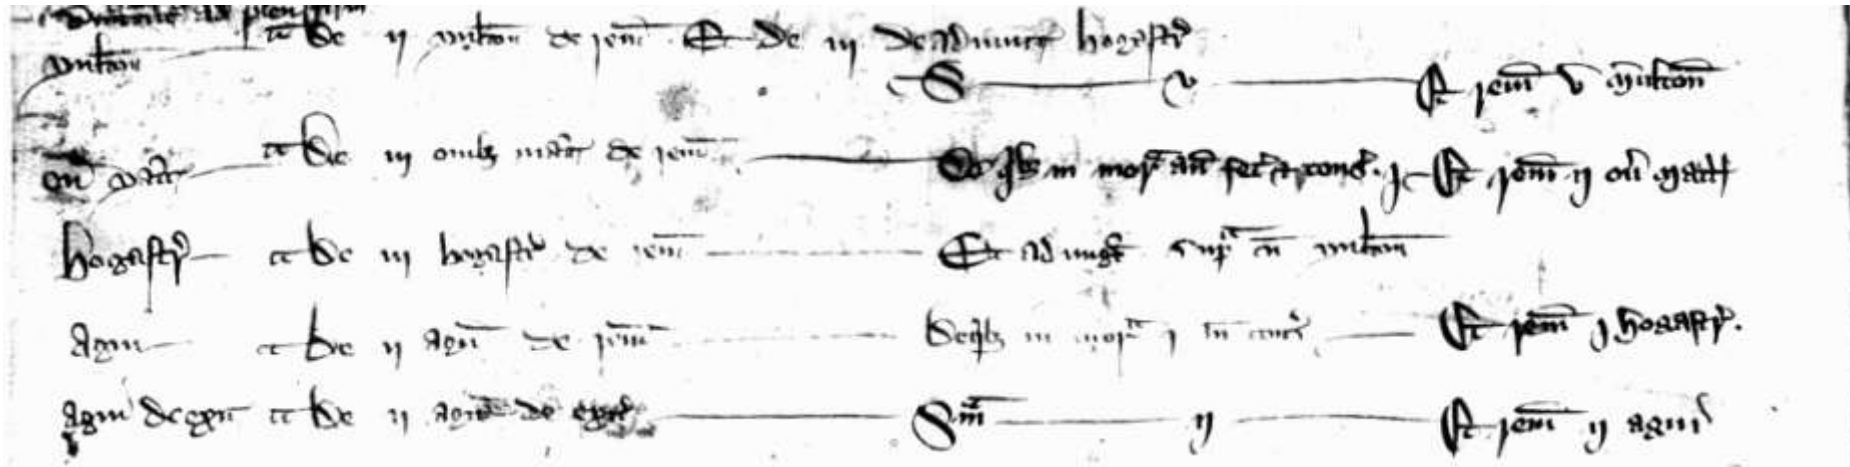 multon r de ij multon de rem Et de iij de adiunct hogastr
S v Et rem v multon
ou matr r de iij ouibz matr de rem De qibz in mora an fet & tons j Et rem ij ou matr
hogastr r de iij hogastr de rem Et adiungt supra cu multon
agni r de ij agn de rem De qibz in mora j Et rem j hogastr
agni de exit r de ij agn de exit Sma ij Et rem ij agni